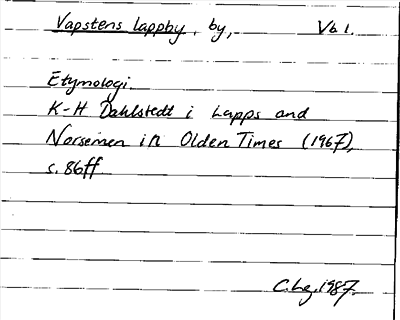 Vapstens lappby, by, Vb l.
Etymologi.
K-H Dahlstedt i Lapps and
Norsemen in Olden Times (1967),
s. 86ff
C.Lg. 1987.